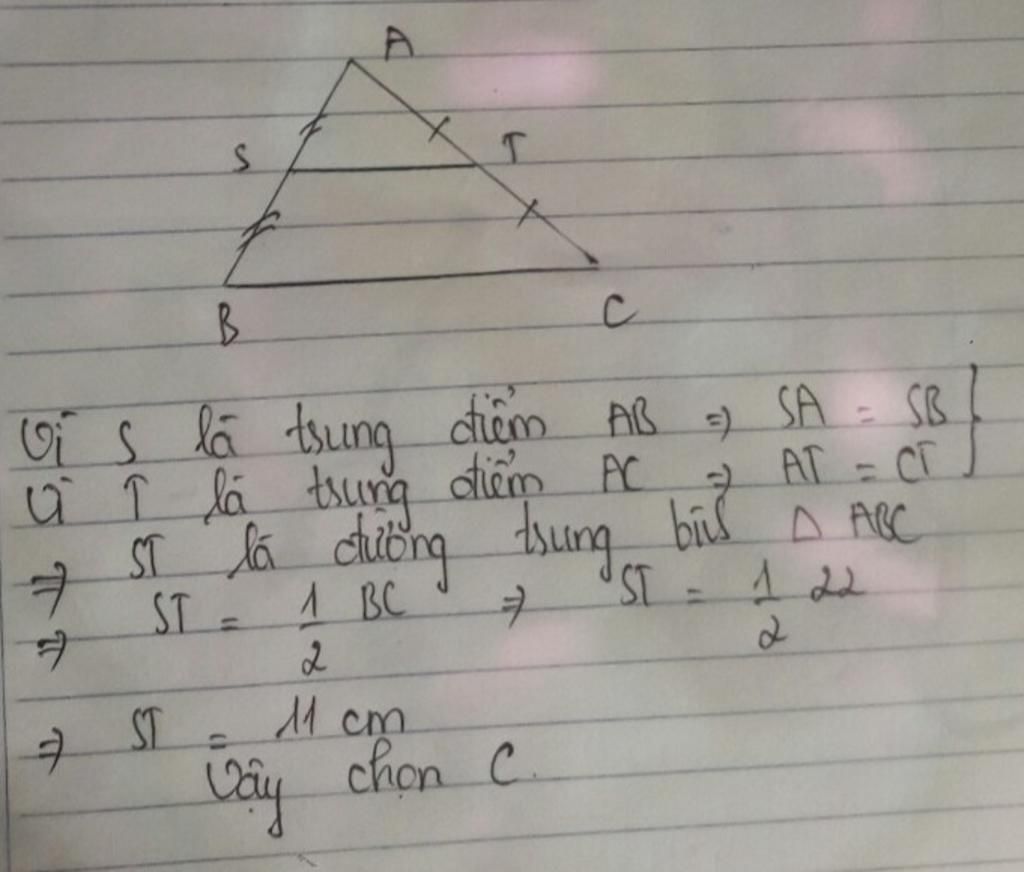 A
S T
B C
Vì S là trung điểm AB => SA = SB }
Vì T là trung điểm AC => AT = CT
=> ST là đường trung bình Δ ABC
=> ST = 1/2 BC => ST = 1/2 22
=> ST = 11 cm
Vậy chọn C.